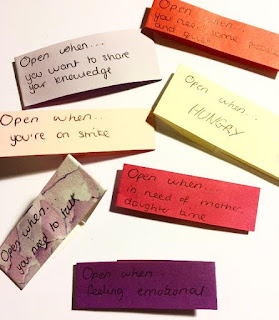 Open when...
you want to share
your knowledge
Open when...
you need some peace
and quiet
Open when...
you're on strike
Open when...
HUNGRY
Open when...
you need to talk
Open when...
in need of mother
daughter time
Open when...
feeling emotional